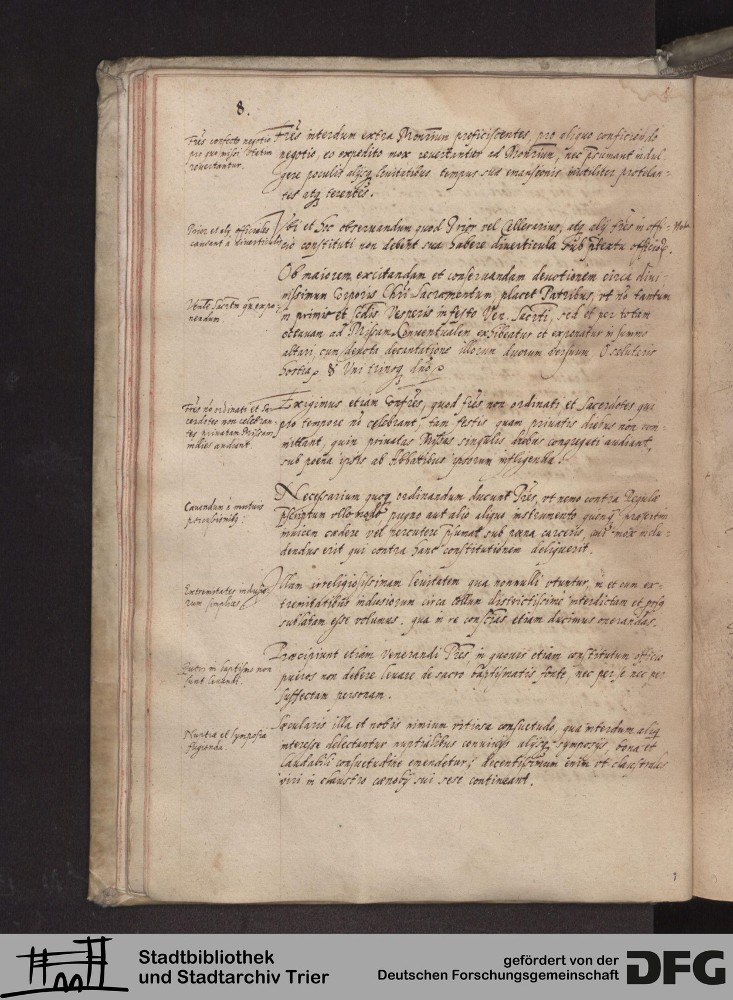 8.
Fres contecto negotio
pro quo missi statim
revertantur.
Fres interdum extra Monrium proficiscentes, pro aliquo conficiendo
negotio, eo expedito mox revertantur ad Monrium, nec psumant indul-
gere poculis alijsq levitatibus tempus suae emansionis inutiliter protelan-
tes atq terentes.
Prior et alij officiales
caveant a diverticulis
Ubi et hoc observandum quod Prior vel Cellerarius, atq alij fres in offi-
cio constituti non debent sua habere diverticula sub ptextu officior.
Nota
Ob maiorem excitandam et conservandam devotionem circa divi-
nissimum Corporis Chri Sacramentum, placet Patribus, ut no tantum
Venle Sacrtm qn expo-
nendum.
in primis et scdis Vesperis in festo Ven. Sacrti, sed et per totam
octavam ad Missam Conventualem exhibeatur et exponatur in summo
altari cum devota decantatione illorum duorum versuum, O salutaris
hostia, & Uni trinoq dno
Fres no ordinati et Sa-
cerdotes non celebran-
tes privatam Missam
indies audiant
Exigimus etiam Confres, quod fres non ordinati et Sacerdotes qui
pro tempore no celebrant, tam festis quam privatis diebus non com-
mittant, quin privatas Missas singulis diebus congregati audiant,
sub poena ipsis ab Abbatibus ipsorum infligenda.
Cavendum a mutuis
percussionib;
Necessarium quoq ordinandum ducunt Pres, ut nemo contra Regulae
pscriptum ullo modo pugno aut alio aliquo instrumento quenq praesertim
invicem caedere vel percutere psumat sub poena carceris, cui mox inclu-
dendus erit qui contra hanc constitutionem deliquerit.
Extremitates indusio-
rum simplices
Illam irreligiosissimam levitatem qua nonnulli utuntur, in et cum ex-
tremitatibus indusiorum circa collum districtissime interdictam et prsq
sublatam esse volumus. qua in re conscias etiam ducimus onerandas.
Pueri in baptismo non
sunt levandi.
Praecipiunt etiam venerandi Pres, in quovis etiam constitutum officio
pueros non debere levare de sacro baptismatis fonte, nec per se nec per
suffectam personam.
Nuptiae et symposia
fugienda.
Secularis illa et nobis nimium vitiosa consuetudo, qua interdum aliq
interesse delectantur nuptialibus convivijs alijsq symposijs, bona et
laudabili consuetudine emendetur; decentissimum enim ut claustrales
viri in claustro caenobij sui sese contineant.
Stadtbibliothek
und Stadtarchiv Trier
gefördert von der
Deutschen Forschungsgemeinschaft
DFG